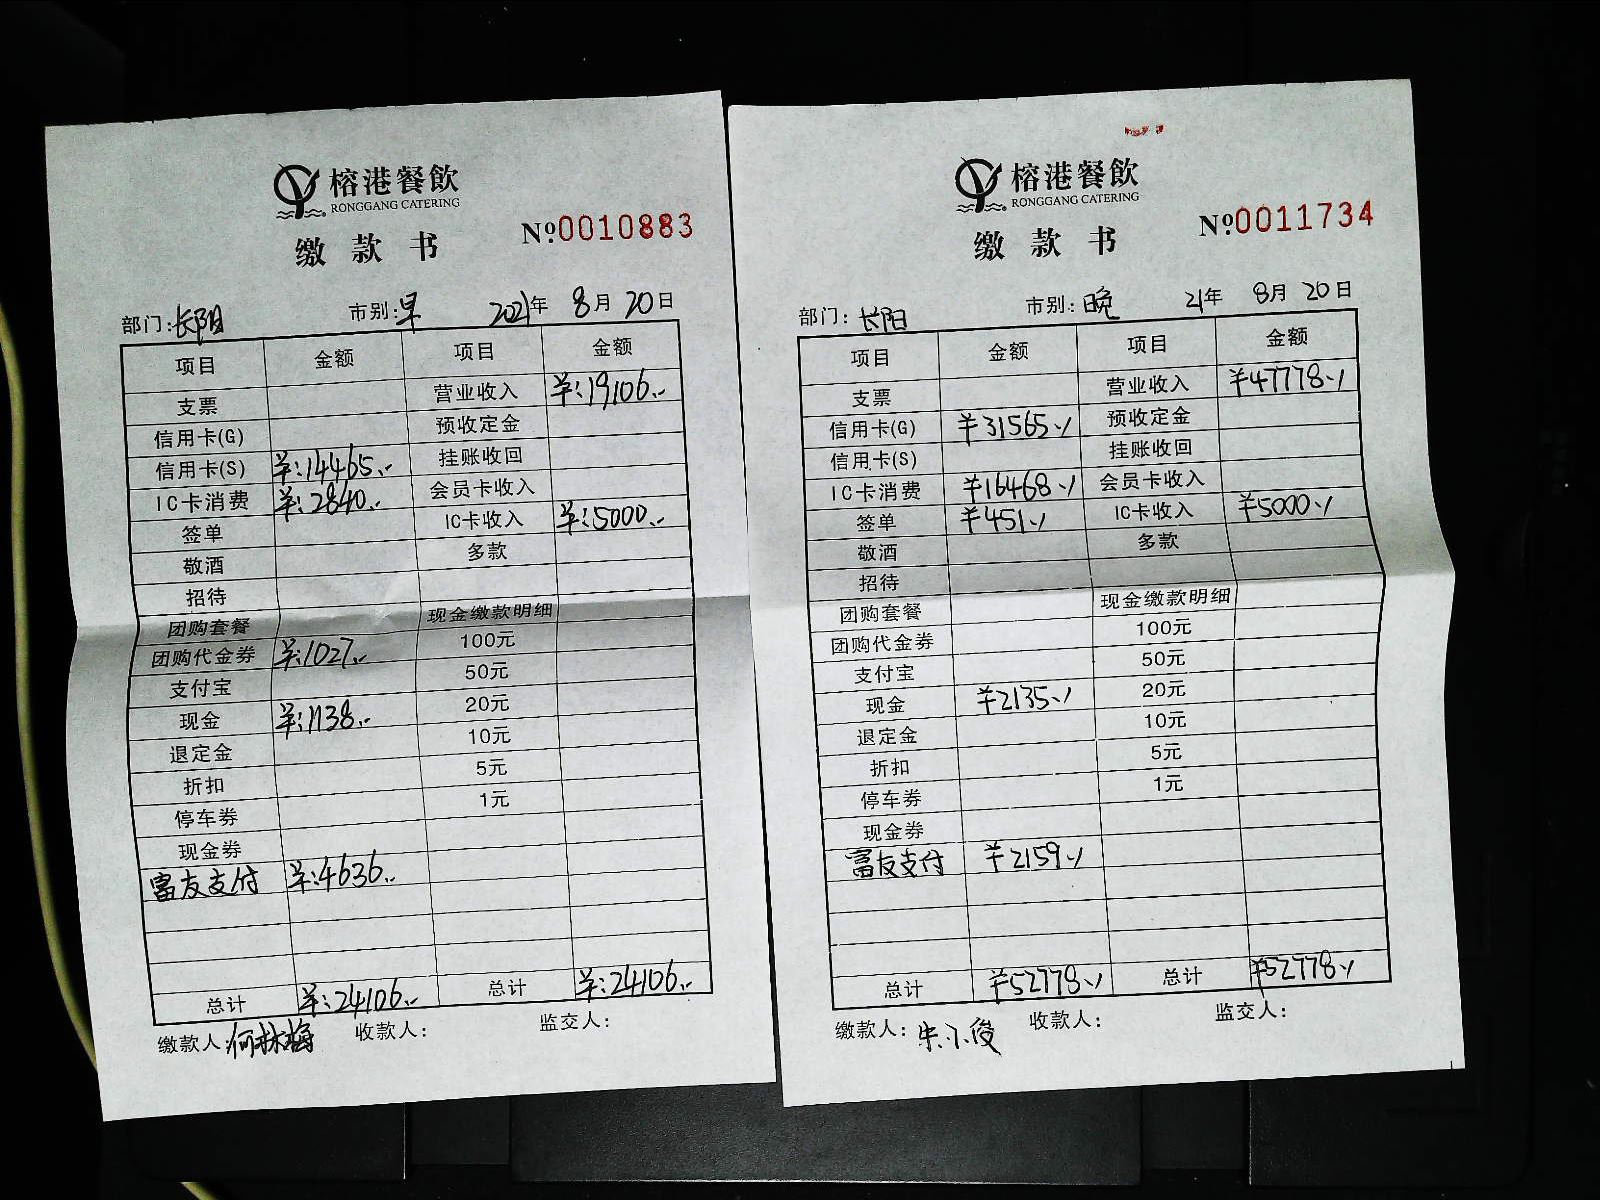 榕港餐飲
RONGGANG CATERING
缴款书
№0010883
部门:长阳 市别:早 2021年 8月 20日
项目 金额 项目 金额
支票 营业收入 羊:19106.-
信用卡(G) 预收定金
信用卡(S) 羊:14465.- 挂账收回
IC卡消费 羊:2840.- 会员卡收入
签单 IC卡收入 羊:5000.-
敬酒 多款
招待
团购套餐 现金缴款明细
团购代金券 羊:1027.- 100元
支付宝 50元
现金 羊:1138.- 20元
退定金 10元
折扣 5元
停车券 1元
现金券
富友支付 羊:4636.-
总计 羊:24106.- 总计 羊:24106.-
缴款人:何林梅 收款人: 监交人:
榕港餐飲
RONGGANG CATERING
缴款书
№0011734
部门:长阳 市别:晚 21年 8月 20日
项目 金额 项目 金额
支票 营业收入 羊47778.-
信用卡(G) 羊31565.- 预收定金
信用卡(S) 挂账收回
IC卡消费 羊16468.- 会员卡收入
签单 羊451.- IC卡收入 羊5000.-
敬酒 多款
招待
团购套餐 现金缴款明细
团购代金券 100元
支付宝 50元
现金 羊2135.- 20元
退定金 10元
折扣 5元
停车券 1元
现金券
富友支付 羊2159.-
总计 羊52778.- 总计 羊52778.-
缴款人:朱小俊 收款人: 监交人: